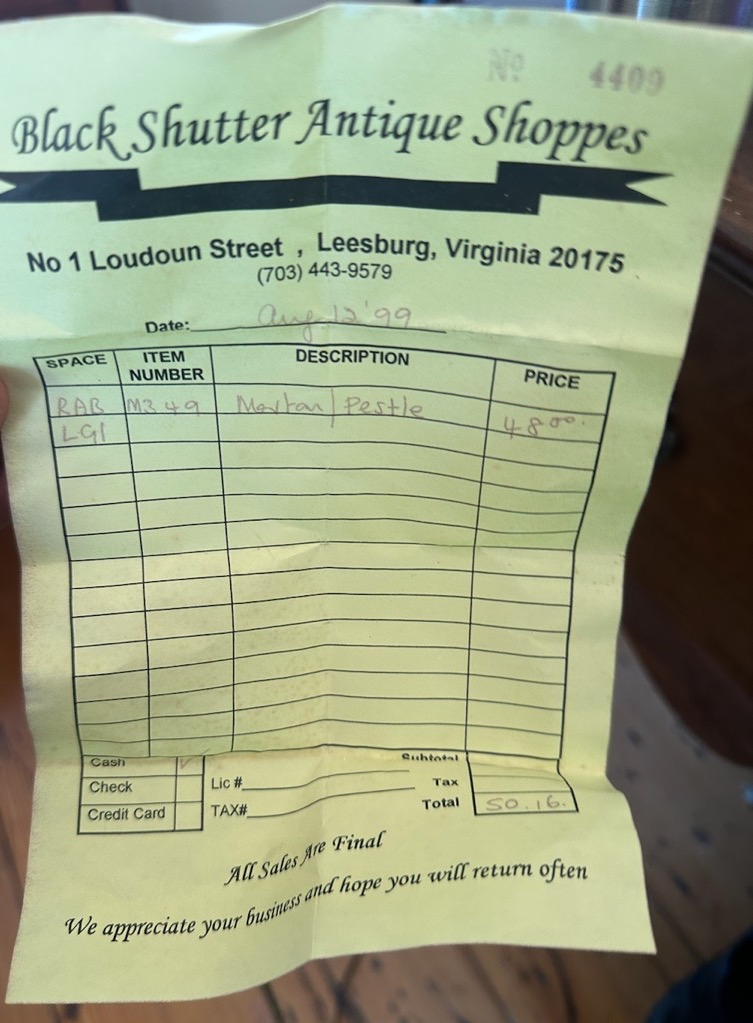 No 4409
Black Shutter Antique Shoppes
No 1 Loudoun Street , Leesburg, Virginia 20175
(703) 443-9579
Date: Aug 12 '99
SPACE ITEM NUMBER DESCRIPTION PRICE
RAB M349 Mortar/Pestle 48.00
LG1
Cash Subtotal
Check Lic # Tax
Credit Card TAX# Total 50.16.
All Sales Are Final
We appreciate your business and hope you will return often